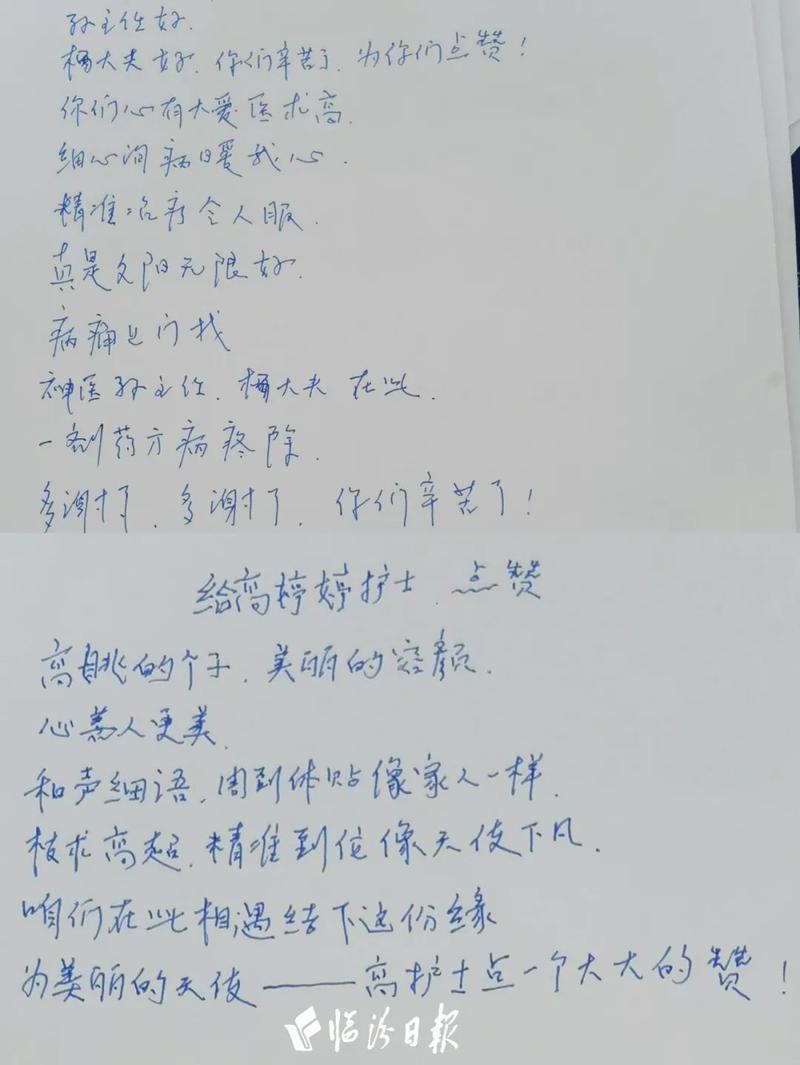 孙主任好.
杨大夫好.你们辛苦了.为你们点赞!
你们心有大爱医术高.
细心问病暖我心.
精准治疗令人服.
真是夕阳无限好.
病痛上门找
神医孙主任.杨大夫在此.
一剂药方病疼除.
多谢了.多谢了.你们辛苦了!
给高婷婷护士.点赞
高眺的个子.美丽的容颜.
心善人更美.
和声细语.周到体贴像家人一样.
技术高超.精准到位像天使下凡.
咱们在此相遇结下这份缘
为美丽的天使——高护士点一个大大的赞!
临汾日报